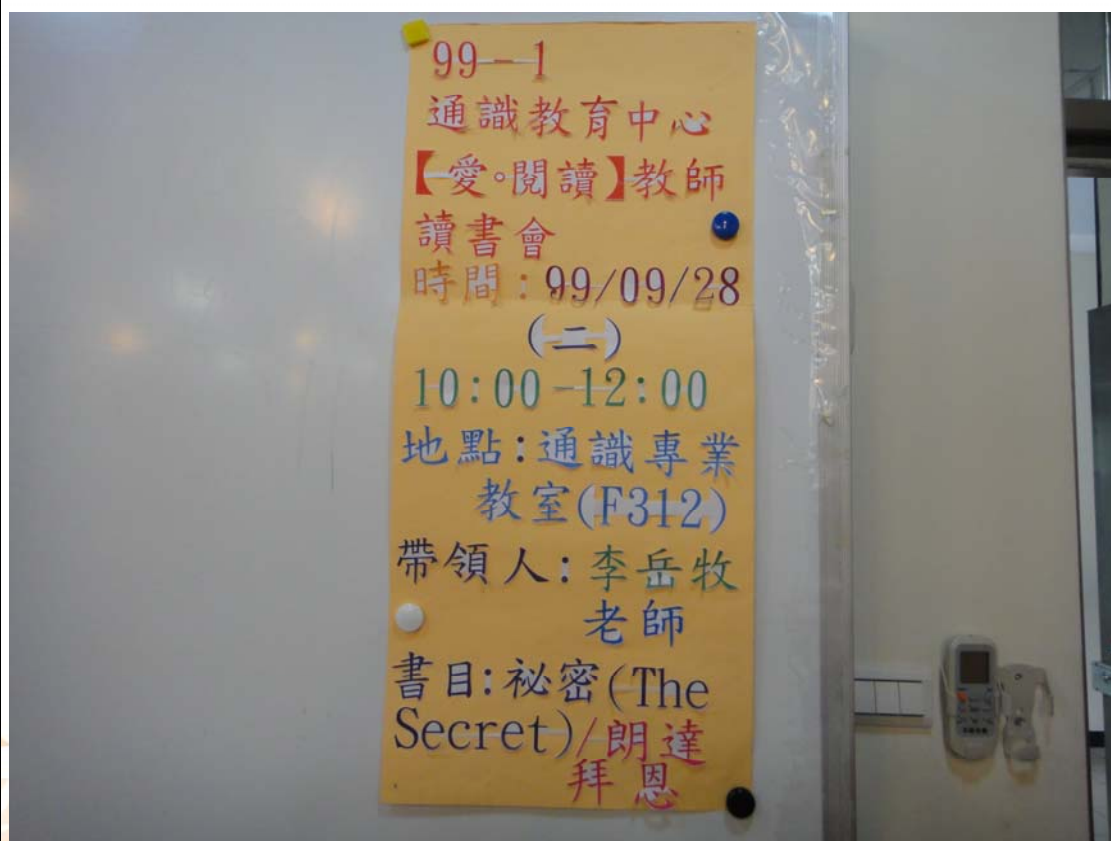 99-1
通識教育中心
【愛。閱讀】教師
讀書會
時間：99/09/28
(二)
10：00-12：00
地點：通識專業
教室(F312)
帶領人：李岳牧
老師
書目：祕密(The
Secret)/朗達
拜恩